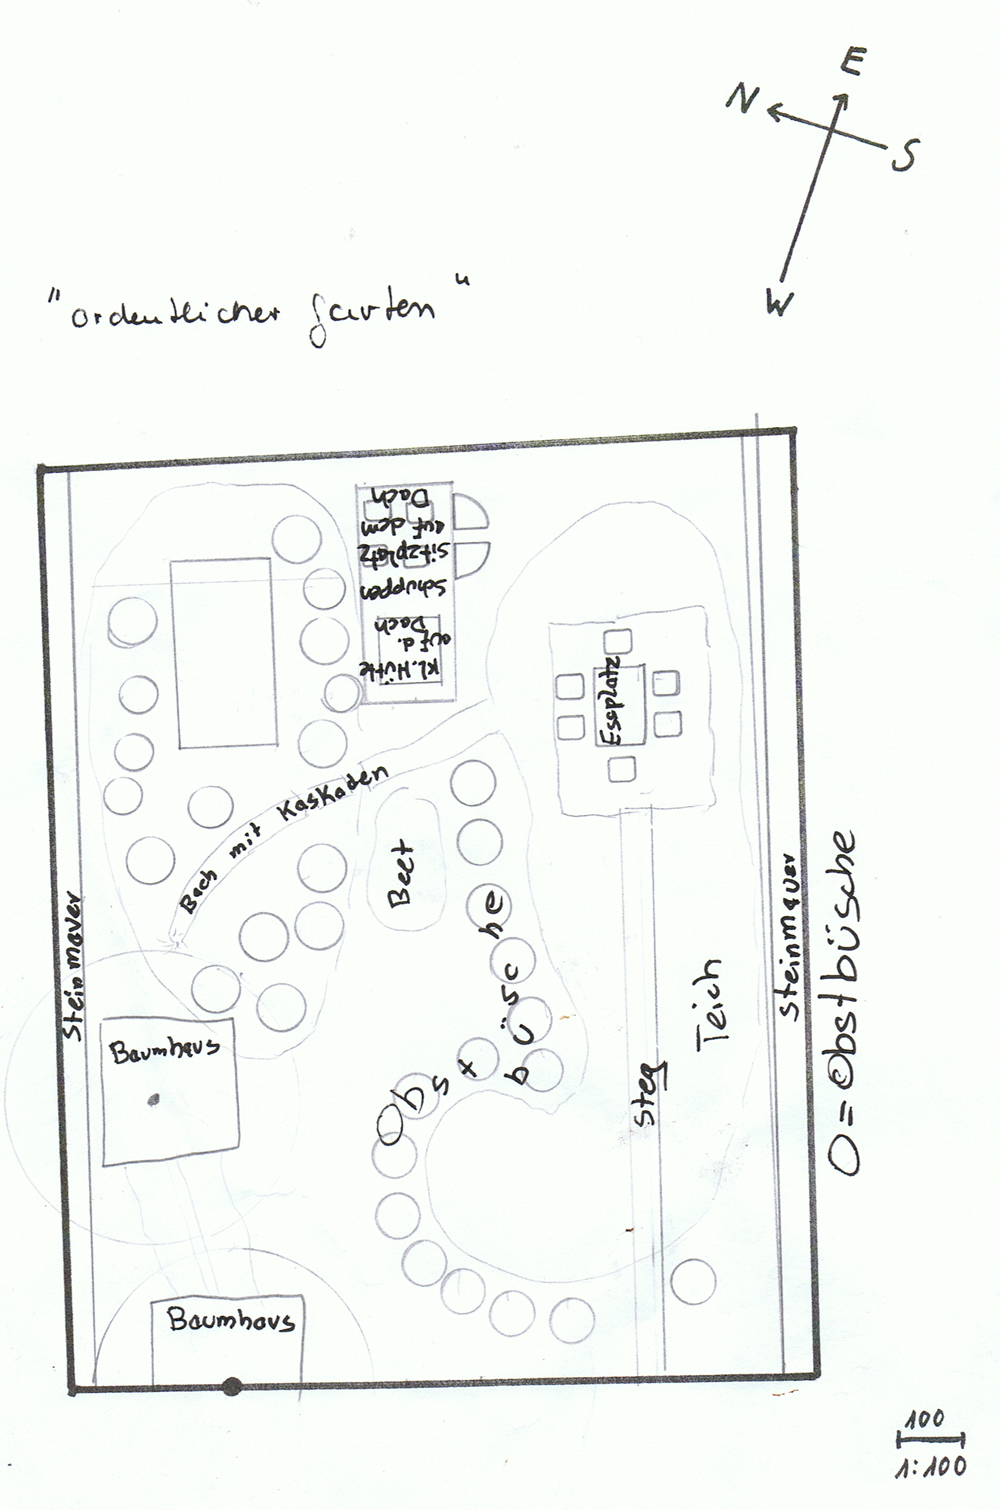 E
N
S
W
"ordentlicher Garten"
Dach
auf dem
sitzplatz
schuppen
Dach
auf d.
Kl. Hütte
Essplatz
Bach mit Kaskaden
Beet
Obstbüsche
Steinmauer
Steinmauer
Teich
Steg
O = Obstbüsche
Baumhaus
Baumhaus
100
1:100